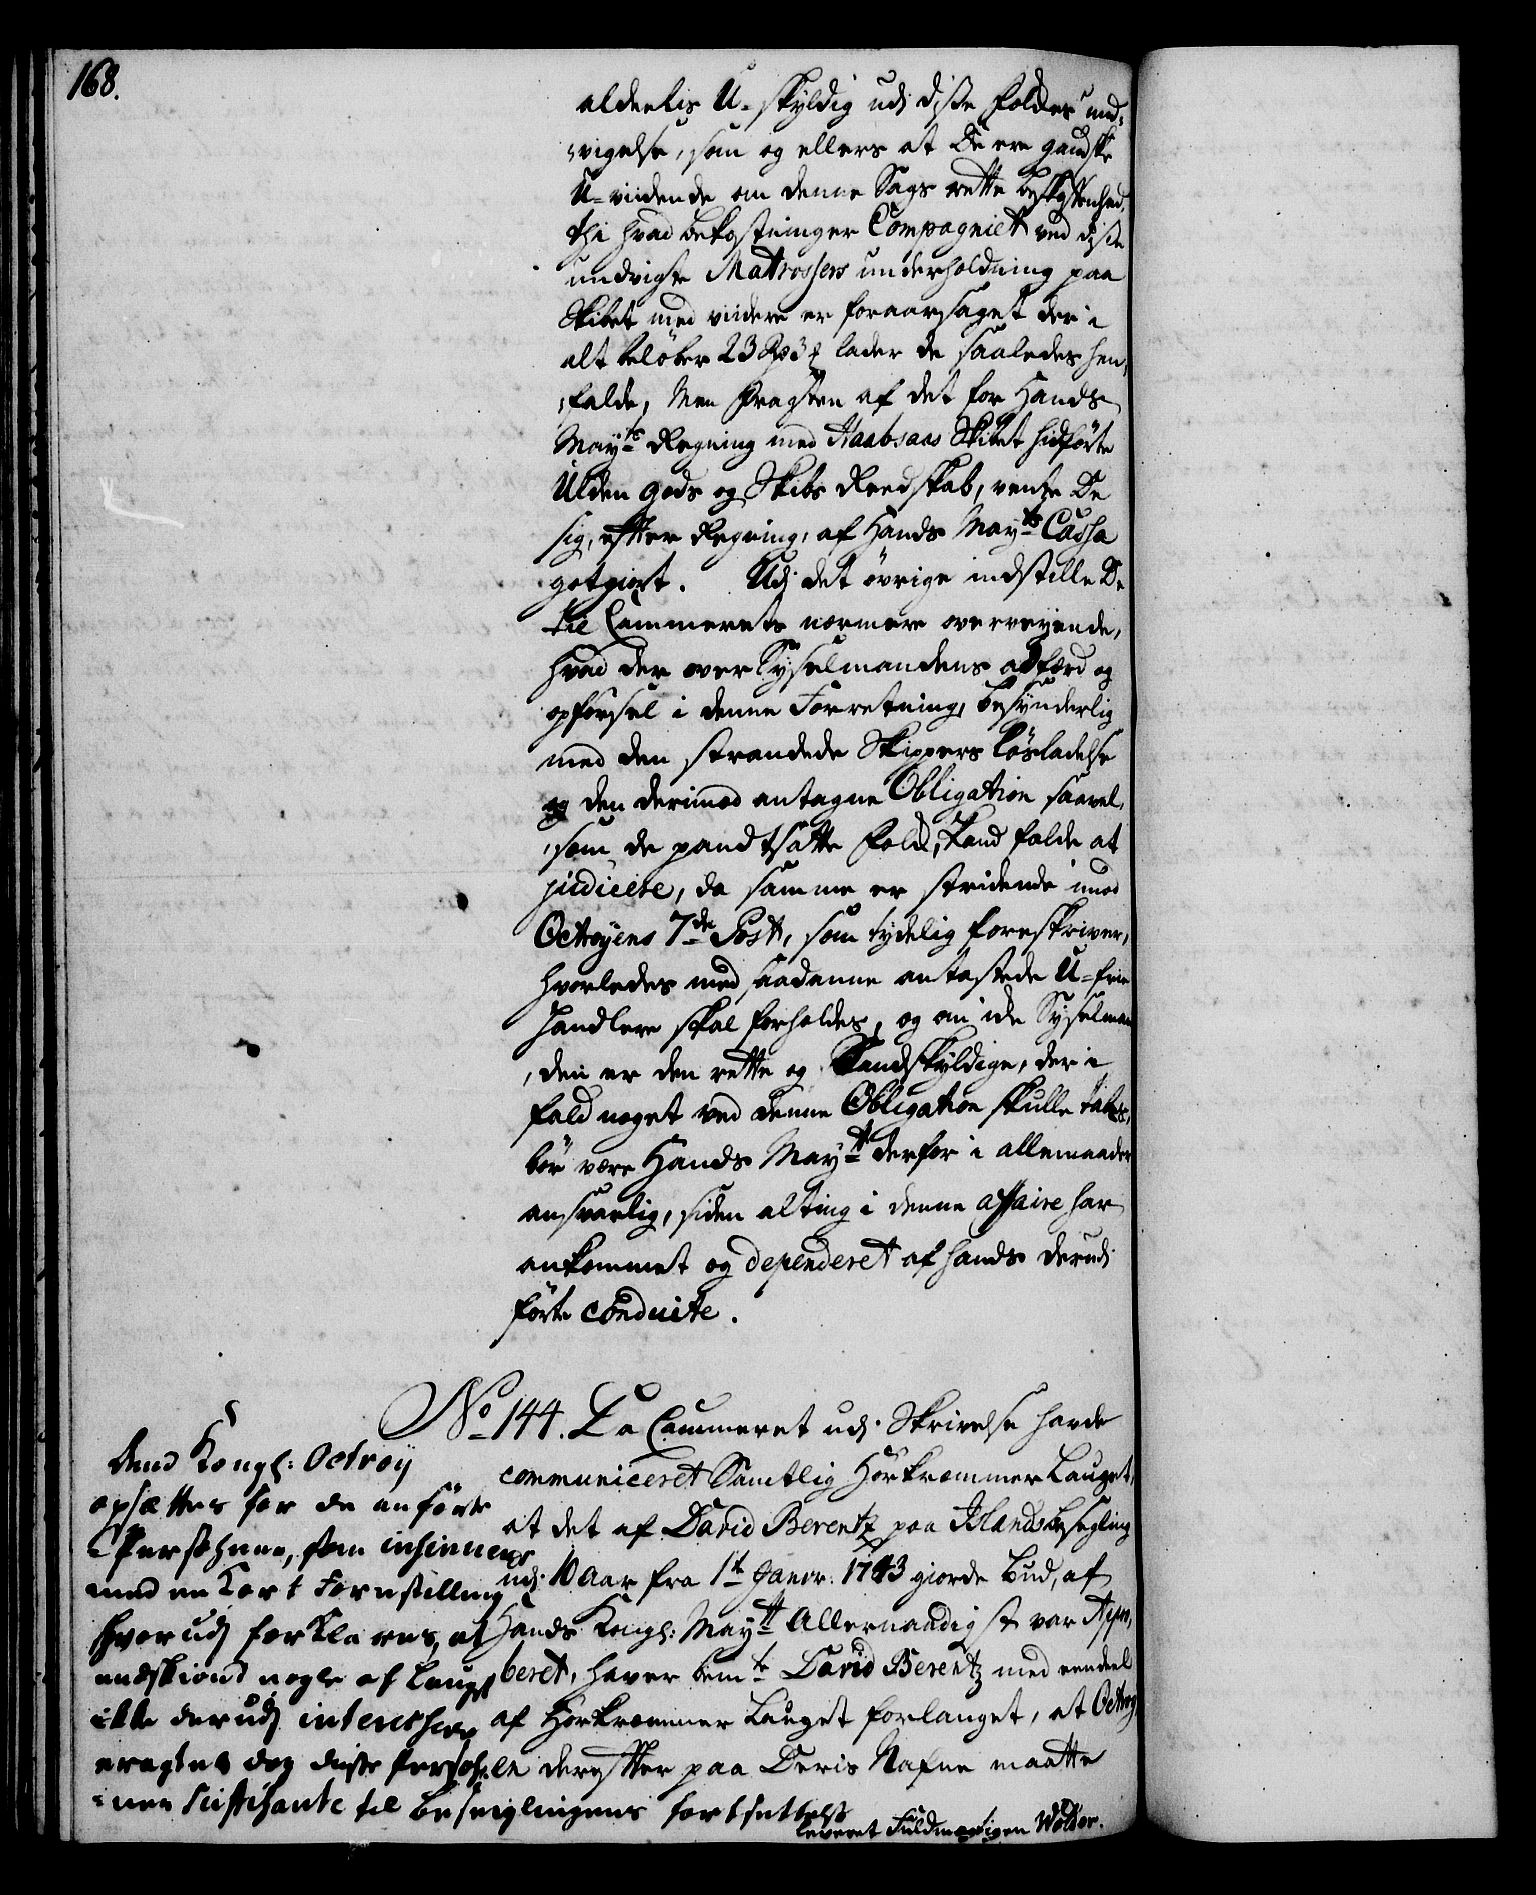 168.
aldeelis U-skyldig udj disse folkes und-
vigelse, som og ellers at De ere gandske
U-viidende om denne Sags rette beskaffenhed,
thi hvad bekostninger Compagniet ved disse
undvigte Matrossers underholdning paa
Skibet med viidere er foraarsaget der i
alt beløber 23 Rd 3 lader de saaledes hen-
falde, Men Fragten af det for Hands
Mayts Regning med Haabsaas Skibet hidførte
Ulden gods og Skibs Reedskab, vente De
sig, efter Regning, af Hands Mayts Cassa
gotgiort. Udj det øvrige indstille De
til Cammerets nærmere overveyende,
hvad der over Sysselmandens adfærd og
opførsel i denne Forretning, besynderlig
med den strandede Skippers løsladelse
og den derimod antagne Obligation saavel
som de pandtsatte folk, kand falde at
judicere, da samme er stridende imod
Octroyens 7de Post, som tydelig foreskriver,
hvorledes med saadanne antastede U-frie
Handlere skal forholdes, og om ikke Sysselman
den er den rette og Sandskyldige, der i
fald noget ved denne Obligation skulle tabes,
bør være Hands Mayt derfor i allemaader
ansvarlig, siden alting i denne affaire har
ankommet og dependeret af hands derudj
førte conduite.
No 144. Da Cammeret udj Skrivelse havde
communiceret Samtlig Hørkræmmer Lauget,
at det af David Berentz paa Islands besegling
udj 10 Aar fra 1te Janvr. 1743 giorde Bud, af
Hands Kongl: Mayt Allernaadigst var Appro-
beret, haver bemte David Berentz med eendeel
af Hørkræmmer Lauget forlanget, at Octroy
en derefter paa Deris Nafne maatte
Dend Kongl: Octroy
opsættes for de anførte
Persohner, som insinueres
med en Kort Forestilling
hvorudj forklares, at
endskiønt nogle af Lauget
ikke derudj interessere
eragtes dog disse Persoh-
ner suffisante til Beseiglingens fortsættelse
leveret Fuldmægtigen Wölder.